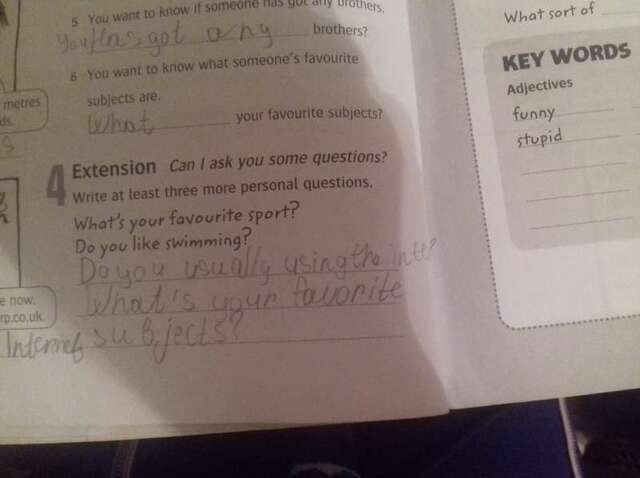 metres
e now.
rp.co.uk.
5 You want to know if someone has got any brothers.
You has got any brothers?
6 You want to know what someone's favourite
subjects are.
What your favourite subjects?
4 Extension Can I ask you some questions?
Write at least three more personal questions.
What's your favourite sport?
Do you like swimming?
Do you usually using the inter
What's your favorite
Internet subjects?
What sort of
KEY WORDS
Adjectives
funny
stupid